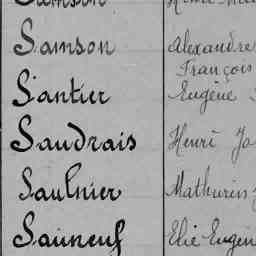 Samson Alexandre
François
Santier Eugène
Saudrais Henri
Saulnier Mathurin
Sauneuf Elie Eugèn